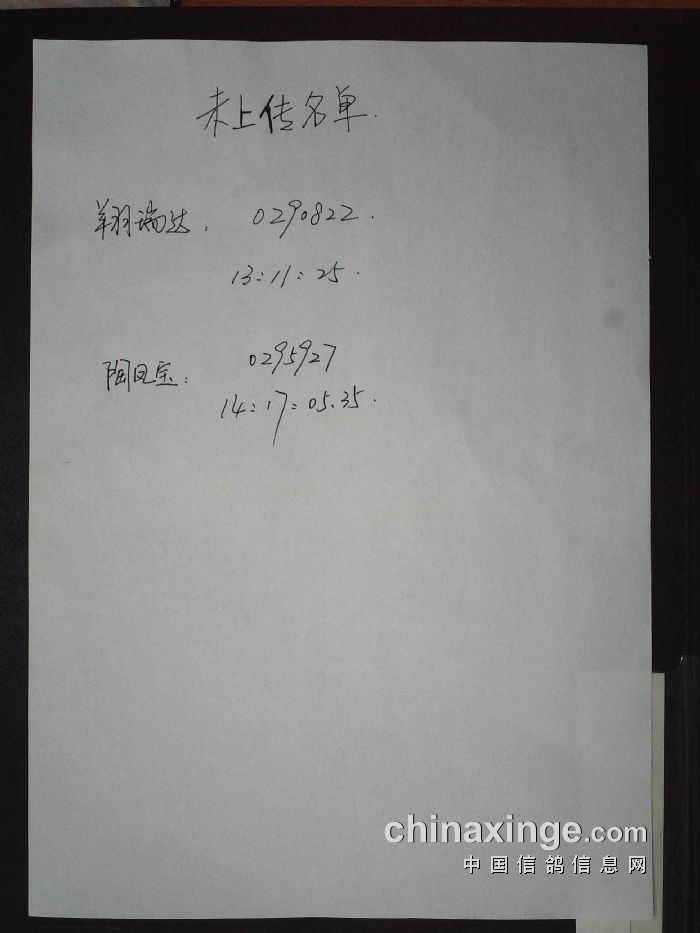 未上传名单.
翔瑞达. 0290822.
13:11:25.
陶凤宝: 0295927
14:17:05.35.
chinaxinge.com
中国信鸽信息网